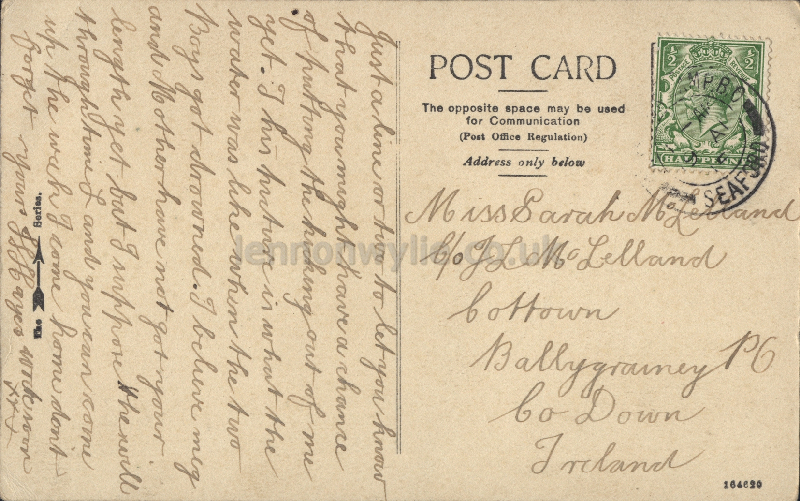 Just a line or two to let you know
that you might have a chance
of putting the heking out of me
yet. This picture is what the
water was like when the two
Boys got drowned. I believe meg
and Mother have not got your
length yet but I suppose there will
through time I and you can come
up the week I come home dont
forget yours J Hayes write soon
xxx
The Series.
POST CARD
The opposite space may be used
for Communication
(Post Office Regulation)
Address only below
½ ½
HALFPENNY
SEAFORD
Miss Sarah McLelland
C/o J L McLelland
Cottown
Ballygrainey PO
Co Down
Ireland
164629
lennonwylie.co.uk